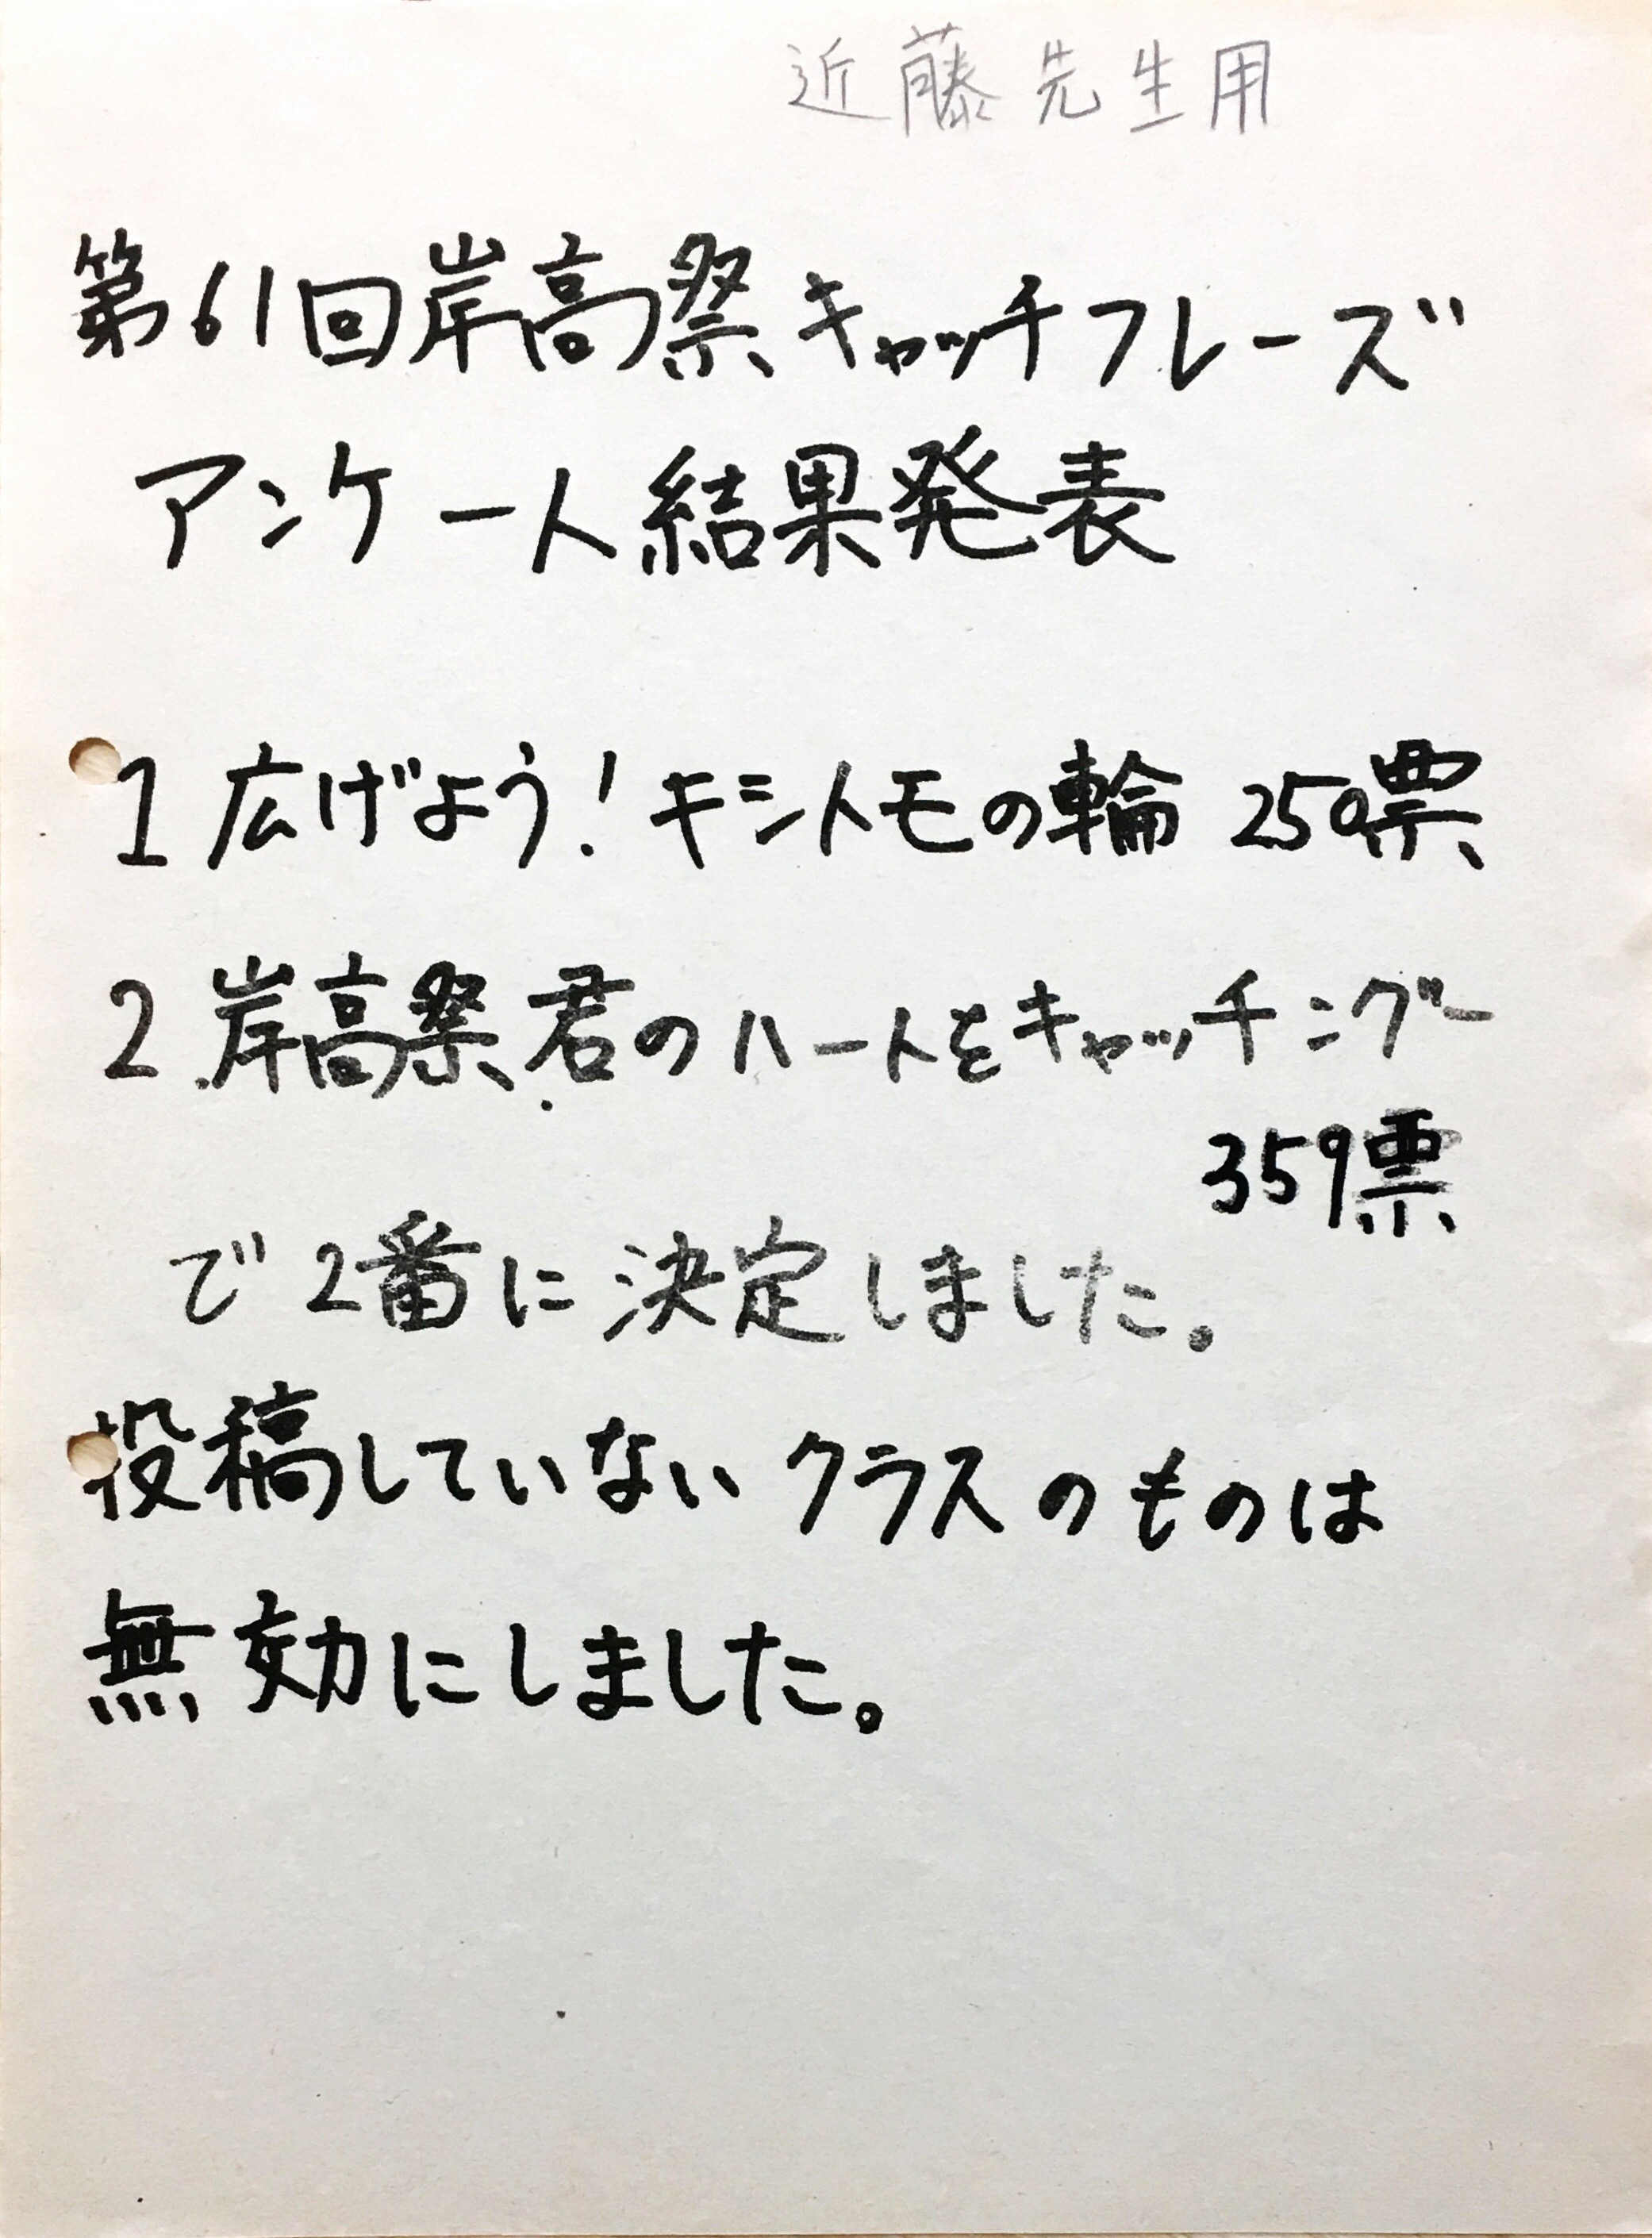 近藤先生用
第61回岸高祭キャッチフレーズ
アンケート結果発表
1 広げよう！キシトモの輪 250票
2 岸高祭君のハートをキャッチングー
359票
で2番に決定しました。
投稿していないクラスのものは
無効にしました。